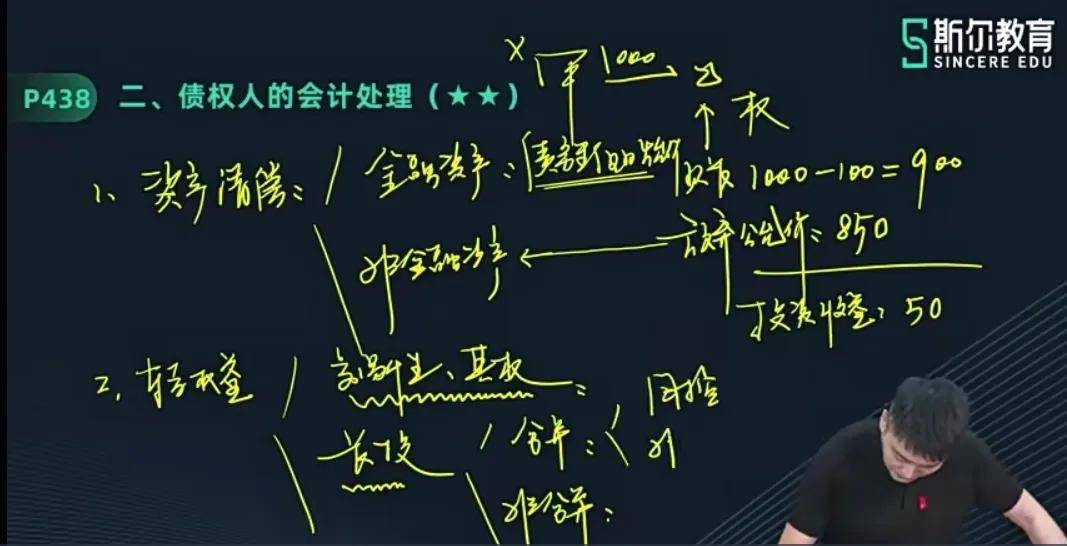 斯尔教育
SINCERE EDU
P438 二、债权人的会计处理(★★)
X 军 1000
权
1、资产清偿:
金融资产:
1000-100=900
非金融资产
放弃公允价:850
投资收益:50
2、转权益
交易性、其权
长投
合并:
同控
非
非合并: